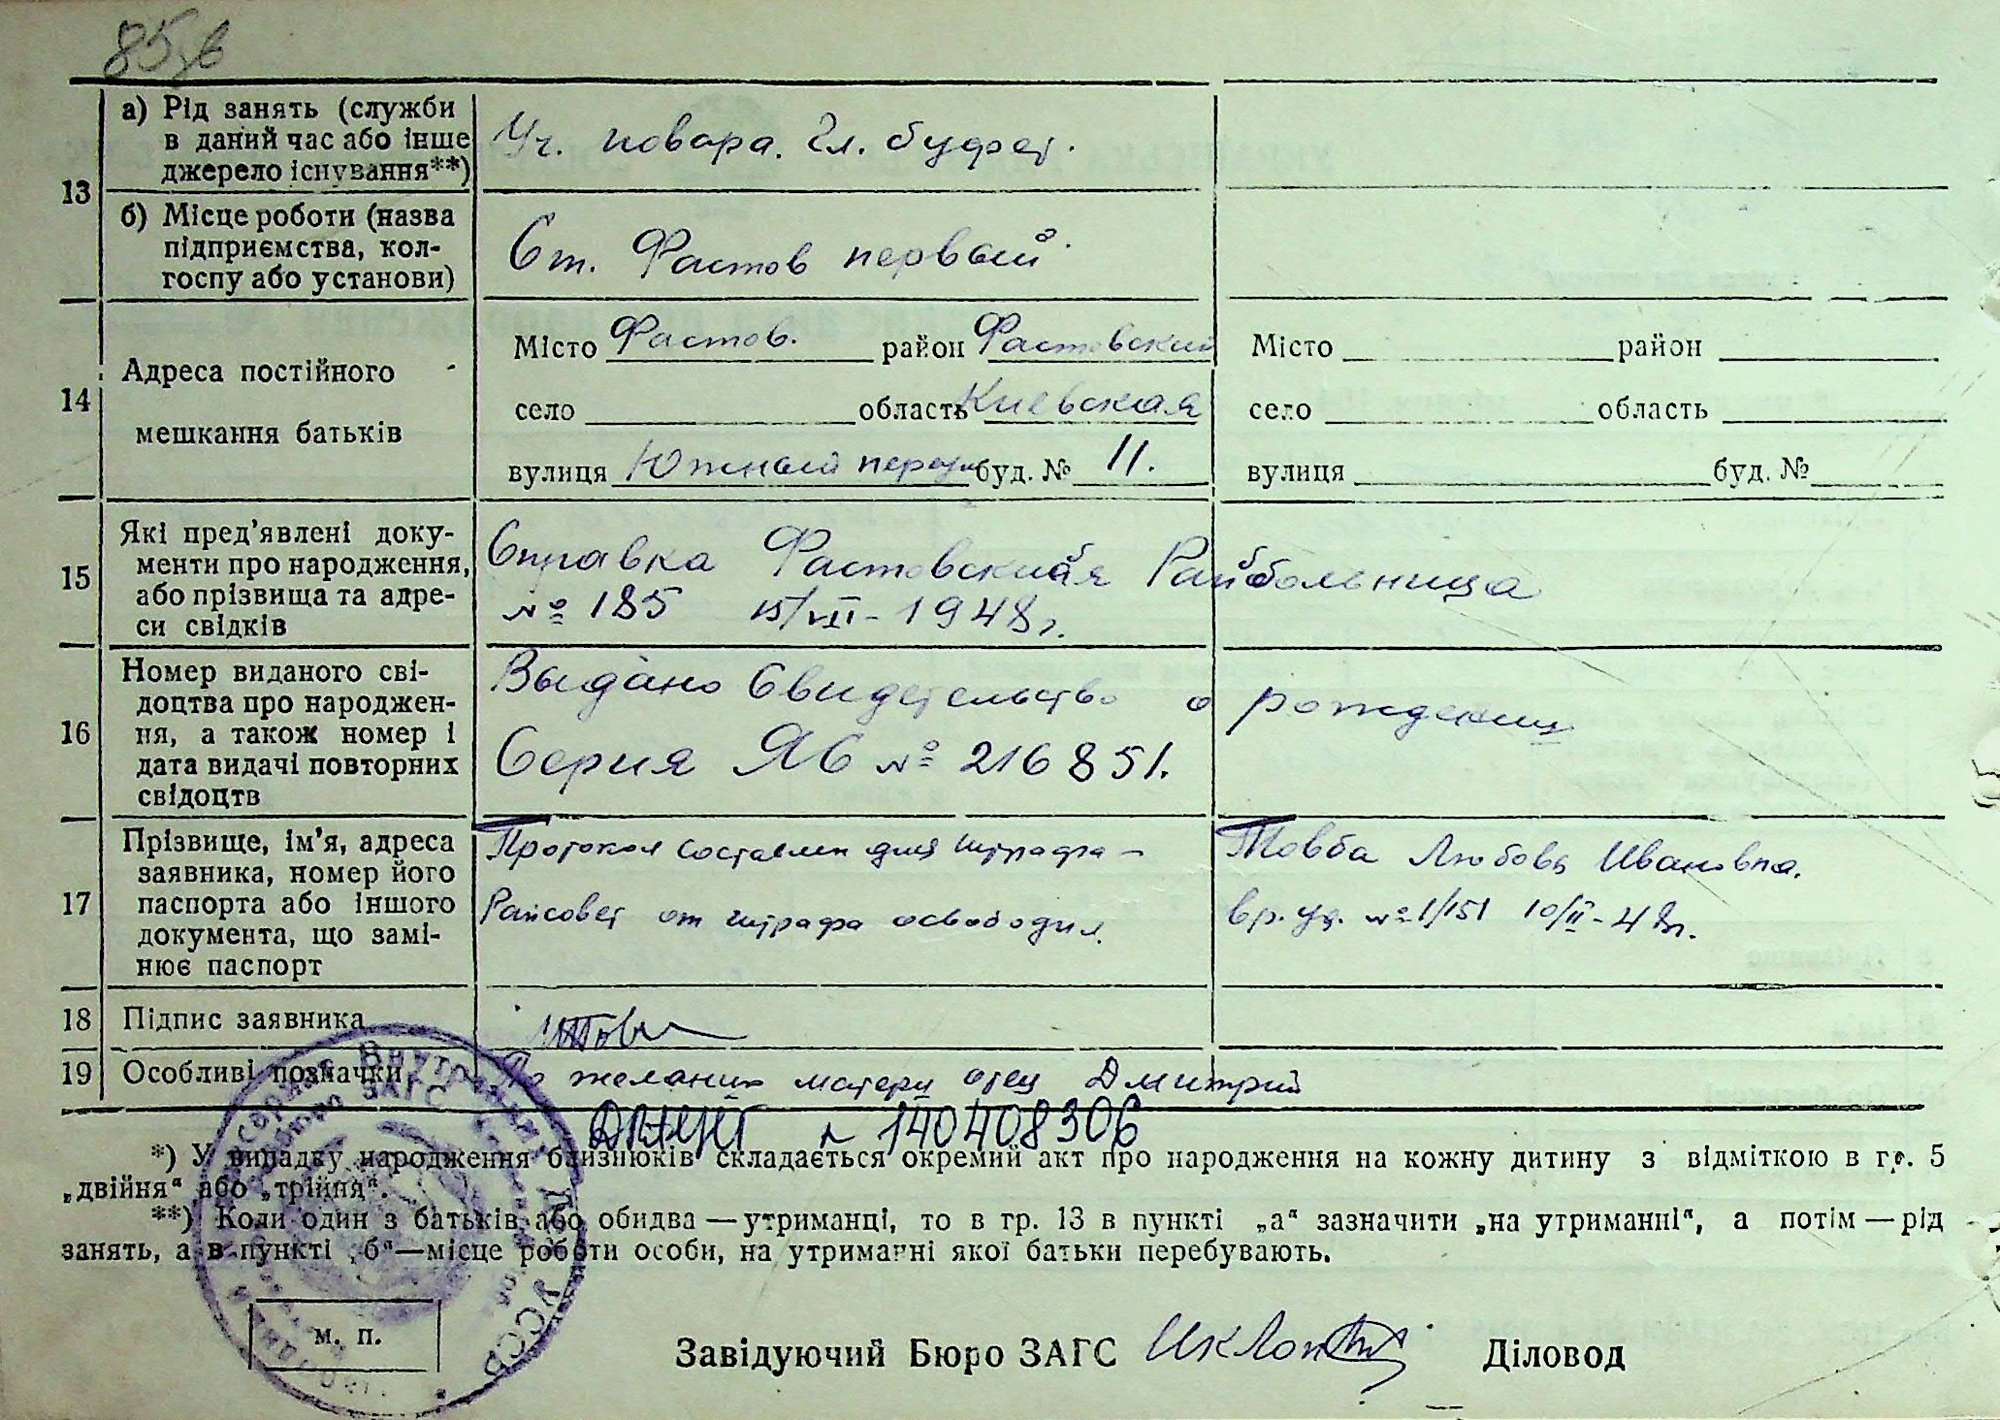 85,в
13
а) Рід занять (служби
в даний час або інше
джерело існування**)
Уч. повара. Гл. буфет.
б) Місце роботи (назва
підприємства, кол-
госпу або установи)
Ст. Фастов первый
14
Адреса постійного
мешкання батьків
Місто Фастов. район Фастовский
село область Киевская
вулиця Южный буд. № 11.
Місто район
село область
вулиця буд. №
15
Які пред’явлені доку-
менти про народження,
або прізвища та адре-
си свідків
Справка Фастовская Райбольница
№ 185 15/VII - 1948 г.
16
Номер виданого сві-
доцтва про народжен-
ня, а також номер і
дата видачі повторних
свідоцтв
Выдано Свидетельство о рождении
Серия ЯБ № 216851.
17
Прізвище, ім’я, адреса
заявника, номер його
паспорта або іншого
документа, що замі-
нює паспорт
Протокол составлен для штрафа -
Райсовет от штрафа освободил.
Товба Любовь Ивановна.
вр. уд. № 1/151 10/II - 48г.
18
Підпис заявника
19
Особливі позначки
По желанию матери отец Дмитрий
№ 140408306
*) У випадку народження близнюків складається окремий акт про народження на кожну дитину з відміткою в гр. 5
„двійня“ або „трійня“.
**) Коли один з батьків або обидва — утриманці, то в гр. 13 в пункті „а“ зазначити „на утриманні“, а потім — рід
занять, а в пункті „б“ — місце роботи особи, на утриманні якої батьки перебувають.
м. п.
Завідуючий Бюро ЗАГС
Діловод
Бюро ЗАГС
УССР